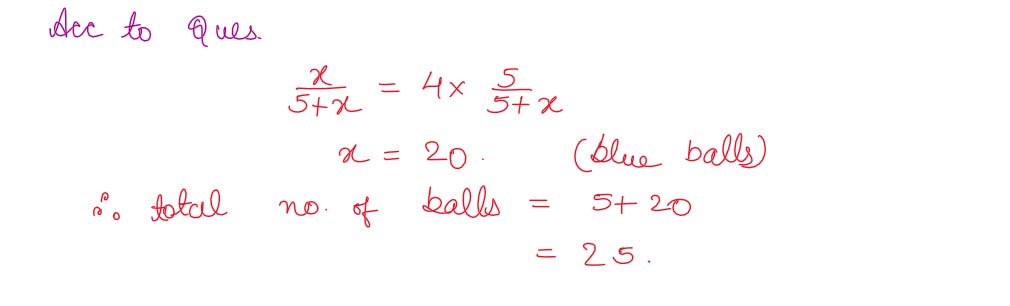 Acc to Ques.
x/5+x = 4× 5/5+x
x = 20. (blue balls)
∴ total no. of balls = 5+20
= 25.